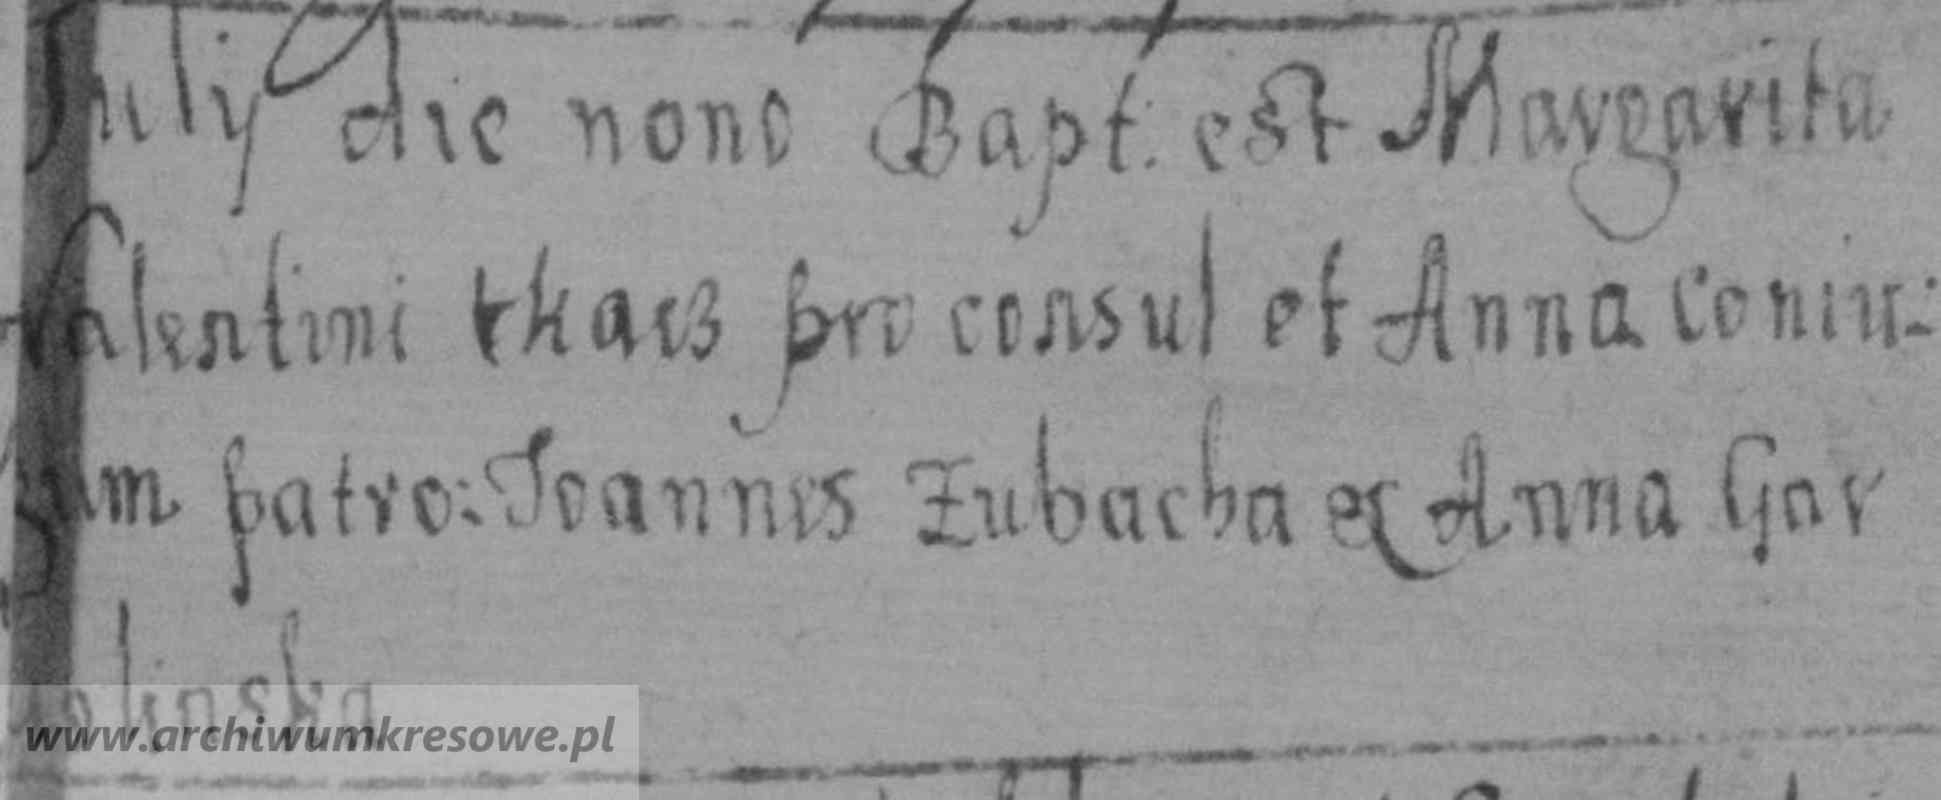 July die nono Bapt: est Margarita
Valentini tkacz pro consul et Anna Coniu:
gum patro: Joannes Zubacha et Anna Gar
olinska
www.archiwumkresowe.pl